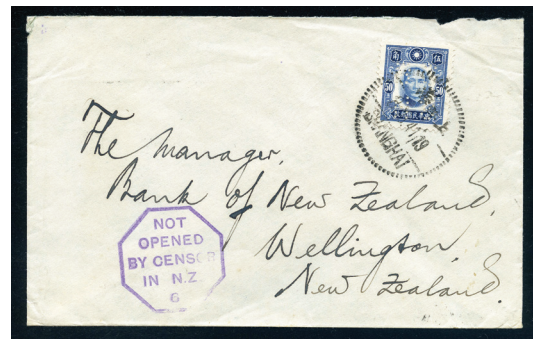 50 50
SHANGHAI
The Manager,
Bank of New Zealand,
Wellington,
New Zealand.
NOT
OPENED
BY CENSOR
IN N.Z.
6